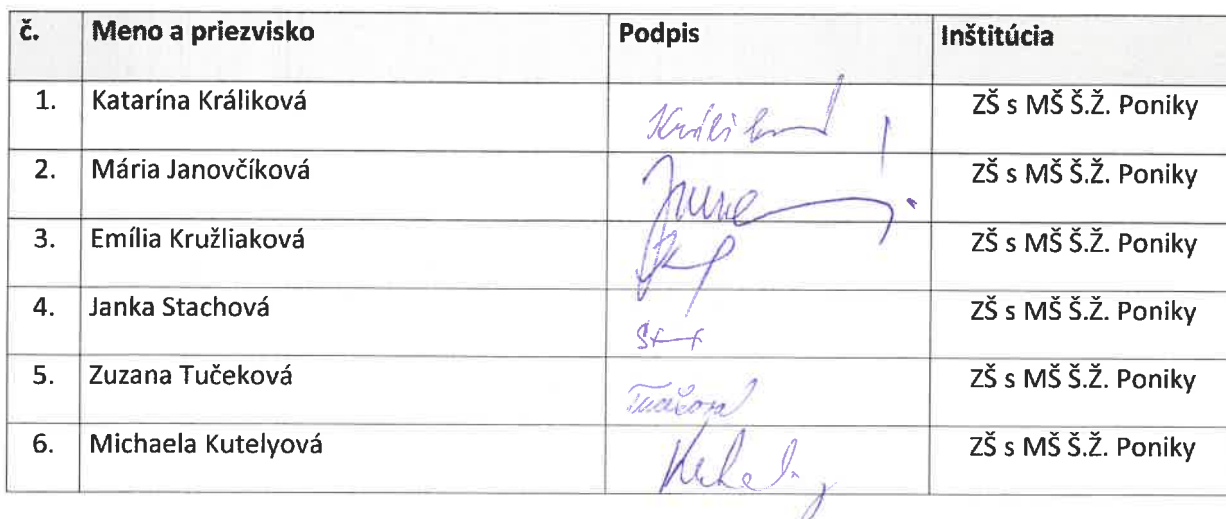 č. Meno a priezvisko Podpis Inštitúcia
1. Katarína Králiková ZŠ s MŠ Š.Ž. Poniky
2. Mária Janovčíková ZŠ s MŠ Š.Ž. Poniky
3. Emília Kružliaková ZŠ s MŠ Š.Ž. Poniky
4. Janka Stachová ZŠ s MŠ Š.Ž. Poniky
5. Zuzana Tučeková ZŠ s MŠ Š.Ž. Poniky
6. Michaela Kutelyová ZŠ s MŠ Š.Ž. Poniky